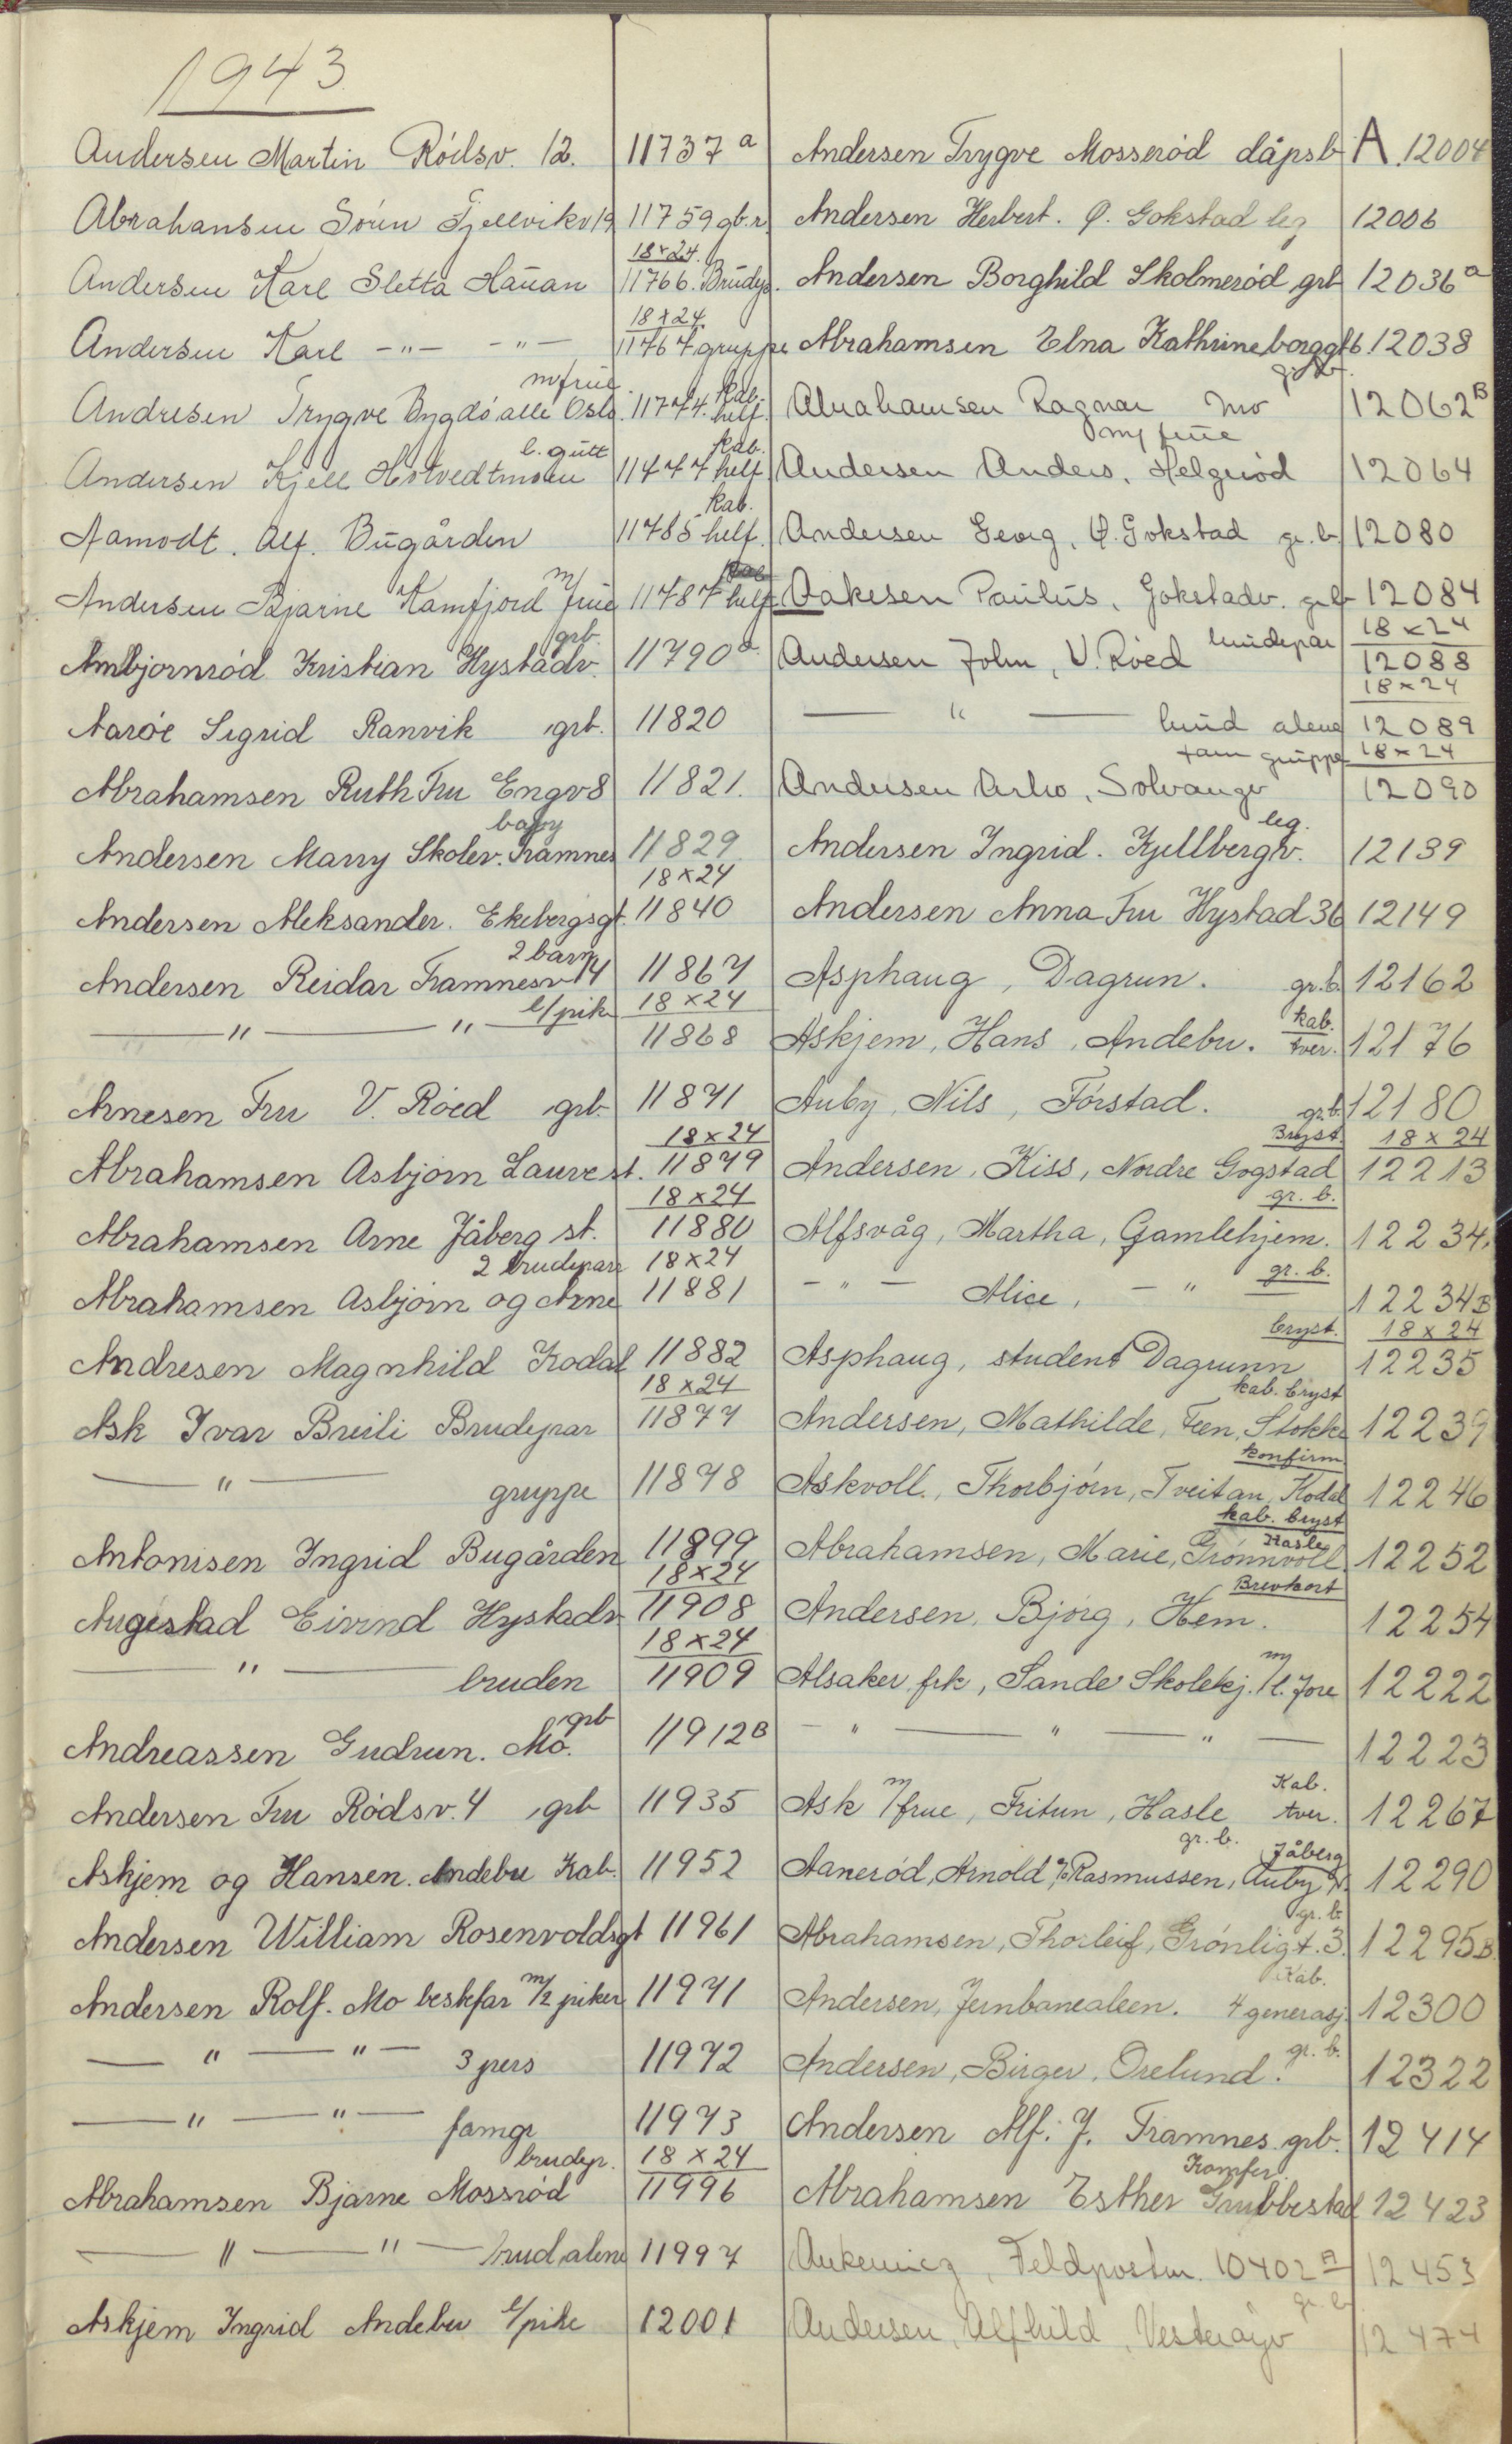 1943
A.
Andersen Martin Rödsv. 12. 11737 a
Abrahansen Sörn Fjellvikv 19 11759 gb.r.
18x24.
Andersen Karl Sletta Hauan 11766. Brudep.
18x24
Andersen Karl -"- -"- 11767 gruppe
m/frue kab.
Andresen Trygve Bygdö alle Oslo. 11774. helf.
l. gutt kab.
Andersen Kjell Hotvedtmoen 11477 helf.
kab.
Aamodt. Alf. Bugården 11785 helf.
Andersen Bjarne Kamfjord m/frue 11787 helf
grb.
Ambjornröd Kristian Hystadv. 11790 a
Aaröe Sigrid Ranvik grb. 11820
Abrahamsen Ruth Fru Engv 8 11821.
baby
Andersen Marry Skolev. Framnes 11829
18x24
Andersen Aleksander. Ekebergsgt. 11840
2 barn
Andersen Reidar Framnesv 14 11867
l/pike 18x24
— " — " — 11868
Arnesen Fru V. Röed grb. 11871
18x24
Abrahamsen Asbjørn Lauve st. 11879
18x24
Abrahamsen Arne Jåberg st. 11880
2 brudepar 18x24
Abrahamsen Asbjörn og Arne 11881
Andresen Magnhild Kodal 11882
18x24
Ask Ivar Breili Brudepar 11877
— " — gruppe 11878
Antonisen Ingrid Bugården 11899
18x24
Augestad Eivind Hystadv. 11908
18x24
— " — bruden 11909
grb
Andreassen Gudrun. Mo. 11912 B
Andersen Fru Rödsv. 4 grb 11935
Askjem og Hansen. Andebu Kab. 11952
Andersen William Rosenvoldsgt 11961
Andersen Rolf. Mo beskfar m/2 piker 11971
— " — " — 3 pers 11972
— " — " — famgr 11973
brudep. 18x24
Abrahamsen Bjarne Mossröd 11996
— " — " — brud alene 11997
Askjem Ingrid Andebu l/pike 12001
Andersen Trygve Mosseröd dåpsb 12004
Andersen Herbert. Ø. Gokstad leg 12006
Andersen Borghild Skolmeröd grb 12036 a
Abrahamsen Elna Kathrineborggt 6. 12038
grb
Abrahamsen Ragnar Mo 12062 B
m/ frue
Andersen Anders, Helgeröd 12064
Andersen Georg, Ø. Gokstad gr. b. 12080
Aakesen Paulus, Gokstadv. grb 12084
18x24
Andersen John, V. Röed brudepar 12088
18x24
— " — brud alene 12089
fam gruppe 18x24
Andersen Arho, Solvangv 12090
leg.
Andersen Ingrid. Kjellbergv. 12139
Andersen Anna Fru Hystad 36 12149
Asphaug, Dagrun. gr. b. 12162
kab.
Askjem, Hans, Andebu. tver. 12176
Auby, Nils, Förstad. gr.b. 12180
Bryst. 18x24
Andersen, Kiss, Nordre Gogstad 12213
gr. b.
Alfsvåg, Martha, Gamlehjem. 12234.
gr. b.
- " - Alice, - " 12234 B
bryst. 18x24
Asphaug, student Dagrunn 12235
kab. bryst
Andersen, Mathilde, Feen, Stokke 12239
konfirm
Askvoll., Thorbjörn, Tveitan, Kodal 12246
kab. bryst
Hasle
Abrahamsen, Marie, Grönnvoll 12252
Brevkort
Andersen, Björg, Hem. 12254
Alsaker frk, Sande Skolekj. m/l. Jore 12222
- " — " — " — 12223
Kab.
Ask m/frue, Fritun, Hasle tver. 12267
gr. b. Jåberg
Aaneröd, Arnold % Rasmussen, Auby N. 12290
gr. b
Abrahamsen, Thorleif, Grönligt. 3. 12295 B.
Kab.
Andersen, Jernbanealeen. 4 generasj. 12300
gr. b.
Andersen, Birger, Orelund. 12322
Andersen Alf. J. Framnes grb. 12414
Komfer.
Abrahamsen Esther Grubbestad 12423
Feldpostnr. 10402 A 12453
gr b
Andersen, Alfhild, Vesteröyv 12474